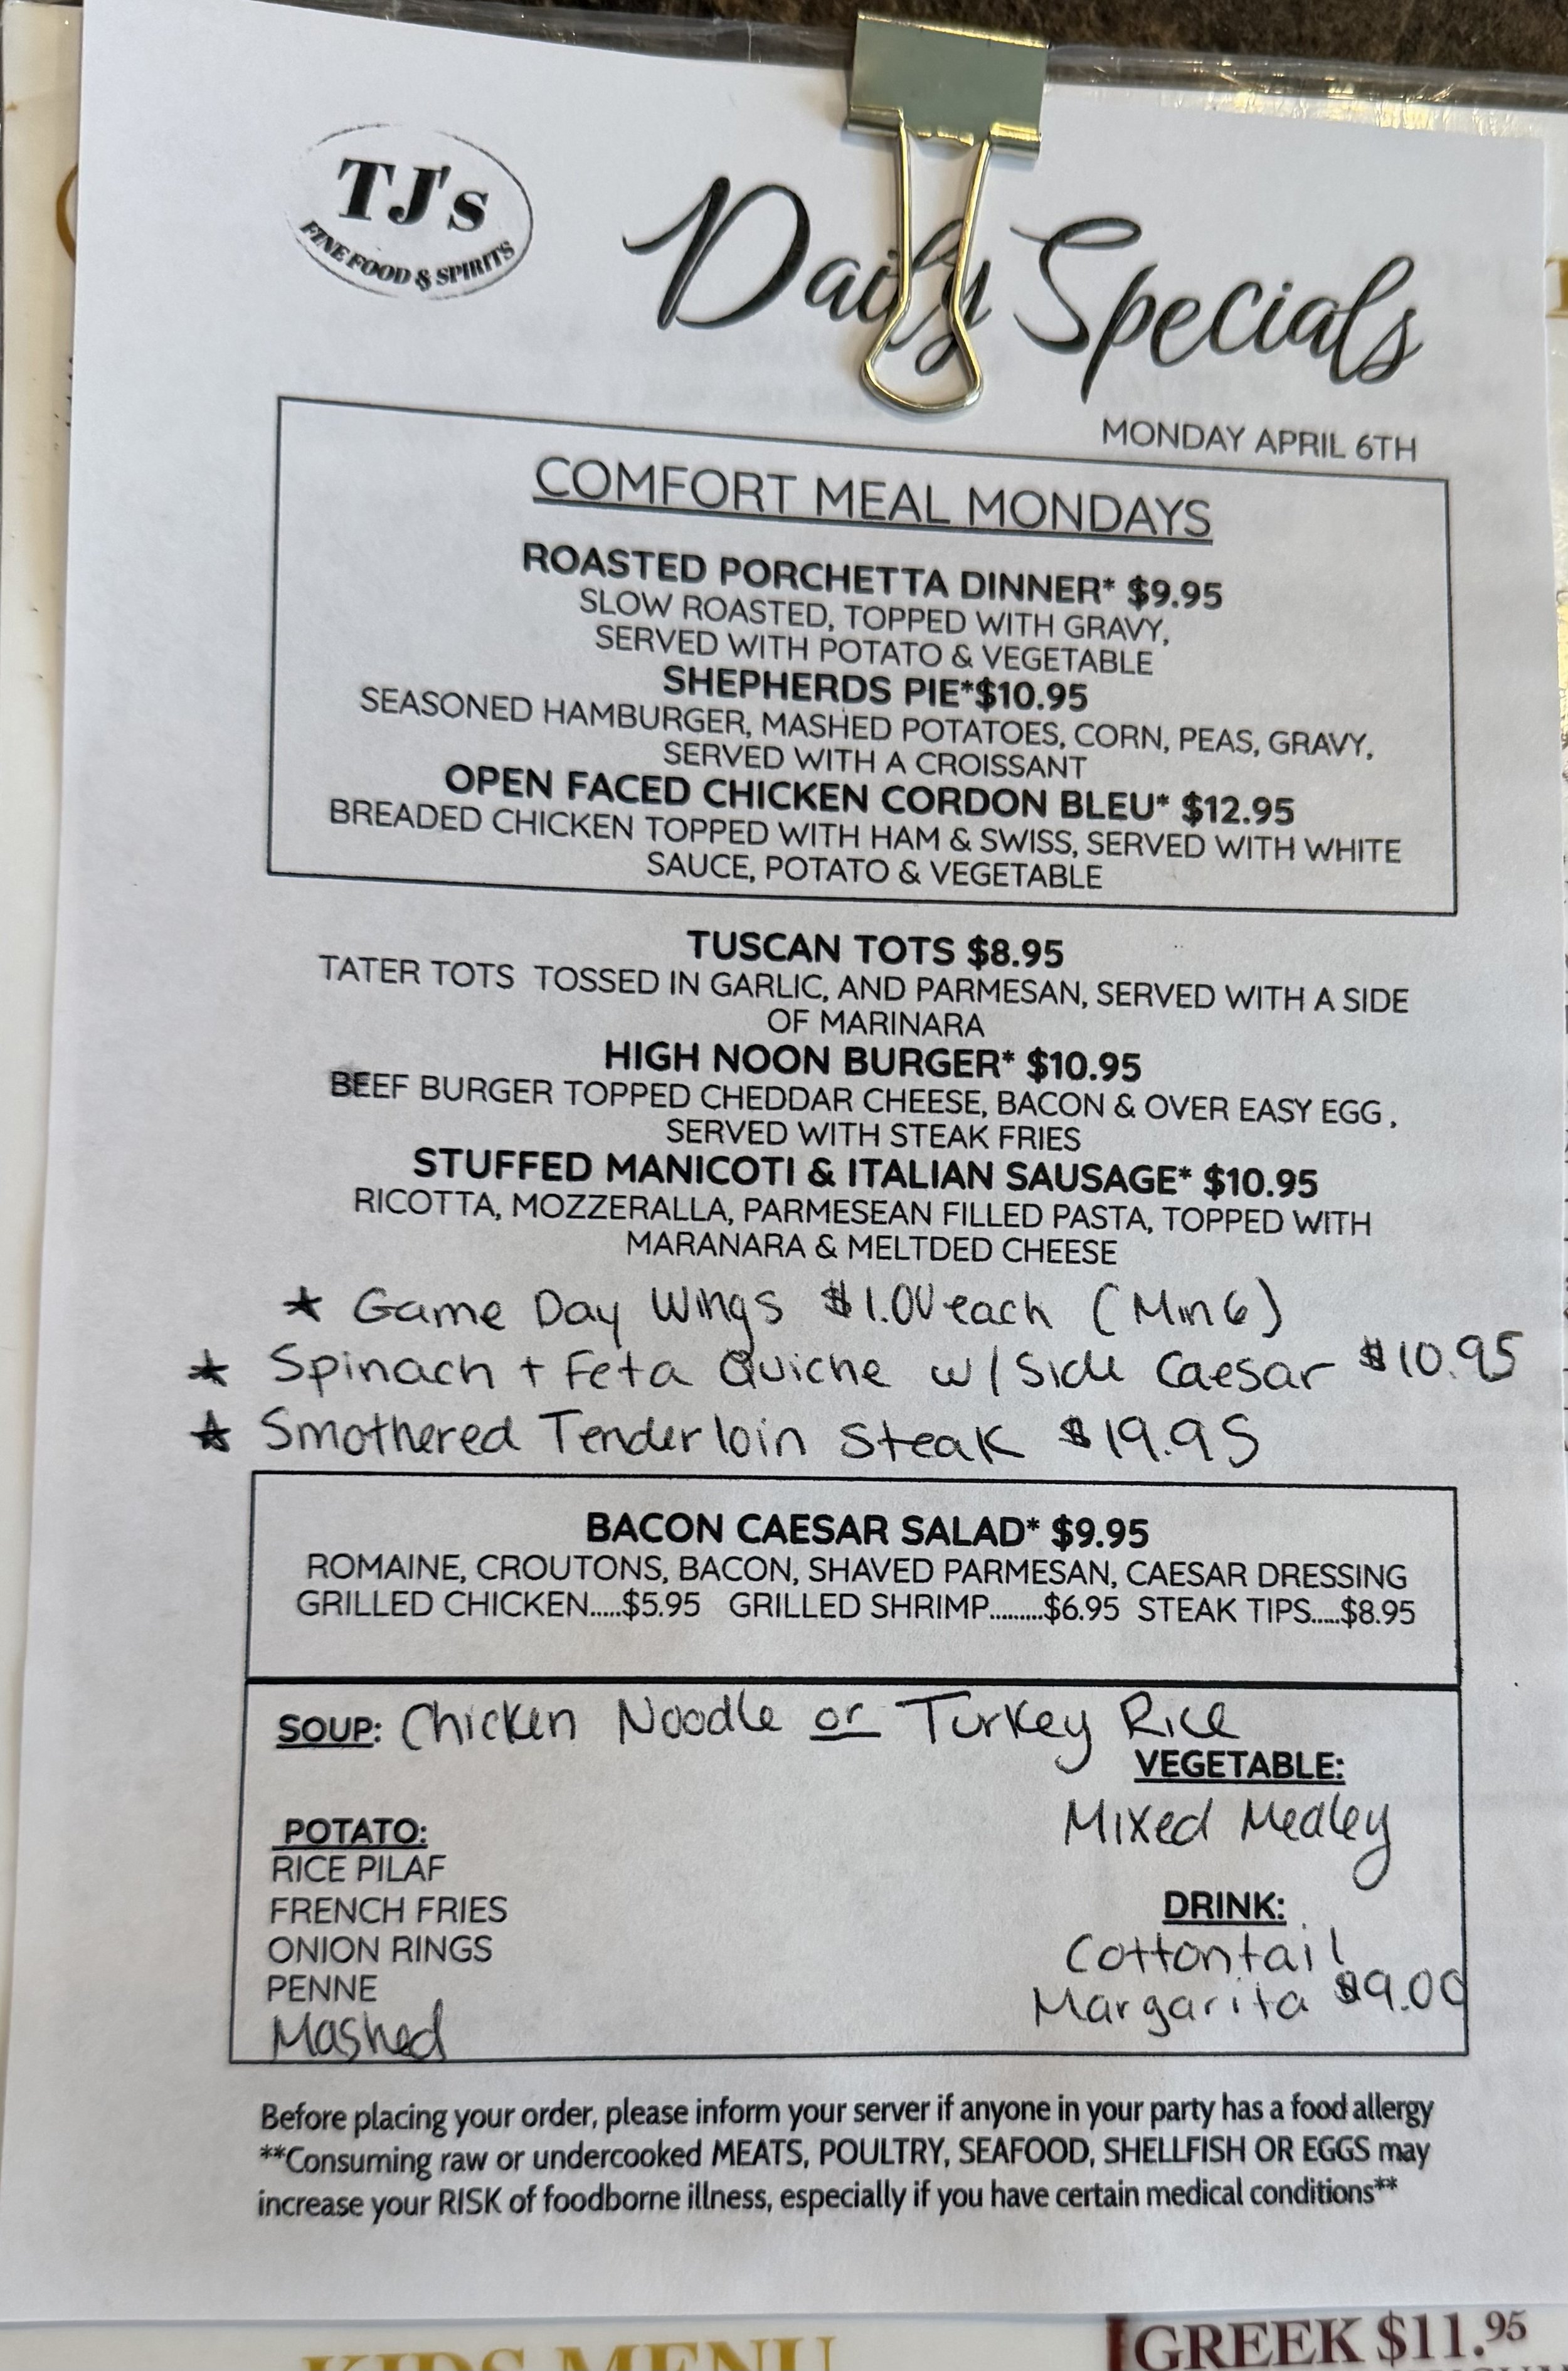 TJ's
FINE FOOD & SPIRITS
Daily Specials
MONDAY APRIL 6TH
COMFORT MEAL MONDAYS
ROASTED PORCHETTA DINNER* $9.95
SLOW ROASTED, TOPPED WITH GRAVY,
SERVED WITH POTATO & VEGETABLE
SHEPHERDS PIE*$10.95
SEASONED HAMBURGER, MASHED POTATOES, CORN, PEAS, GRAVY,
SERVED WITH A CROISSANT
OPEN FACED CHICKEN CORDON BLEU* $12.95
BREADED CHICKEN TOPPED WITH HAM & SWISS, SERVED WITH WHITE
SAUCE, POTATO & VEGETABLE
TUSCAN TOTS $8.95
TATER TOTS TOSSED IN GARLIC, AND PARMESAN, SERVED WITH A SIDE
OF MARINARA
HIGH NOON BURGER* $10.95
BEEF BURGER TOPPED CHEDDAR CHEESE, BACON & OVER EASY EGG ,
SERVED WITH STEAK FRIES
STUFFED MANICOTI & ITALIAN SAUSAGE* $10.95
RICOTTA, MOZZERALLA, PARMESEAN FILLED PASTA, TOPPED WITH
MARANARA & MELTDED CHEESE
★ Game Day Wings $1.00 each (Min 6)
★ Spinach + Feta Quiche w/ Side Caesar $10.95
★ Smothered Tenderloin Steak $19.95
BACON CAESAR SALAD* $9.95
ROMAINE, CROUTONS, BACON, SHAVED PARMESAN, CAESAR DRESSING
GRILLED CHICKEN.....$5.95 GRILLED SHRIMP.........$6.95 STEAK TIPS.....$8.95
SOUP: Chicken Noodle or Turkey Rice
VEGETABLE:
Mixed Medley
POTATO:
RICE PILAF
FRENCH FRIES
ONION RINGS
PENNE
Mashed
DRINK:
Cottontail
Margarita $9.00
Before placing your order, please inform your server if anyone in your party has a food allergy
**Consuming raw or undercooked MEATS, POULTRY, SEAFOOD, SHELLFISH OR EGGS may
increase your RISK of foodborne illness, especially if you have certain medical conditions**
KIDS MENU
GREEK $11.95